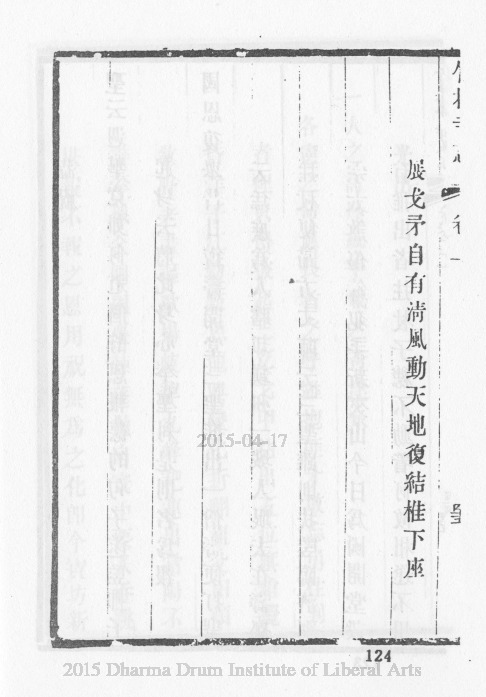 展戈矛自有淸風動天地復結椎下座
卷一
124
2015-04-17
2015 Dharma Drum Institute of Liberal Arts